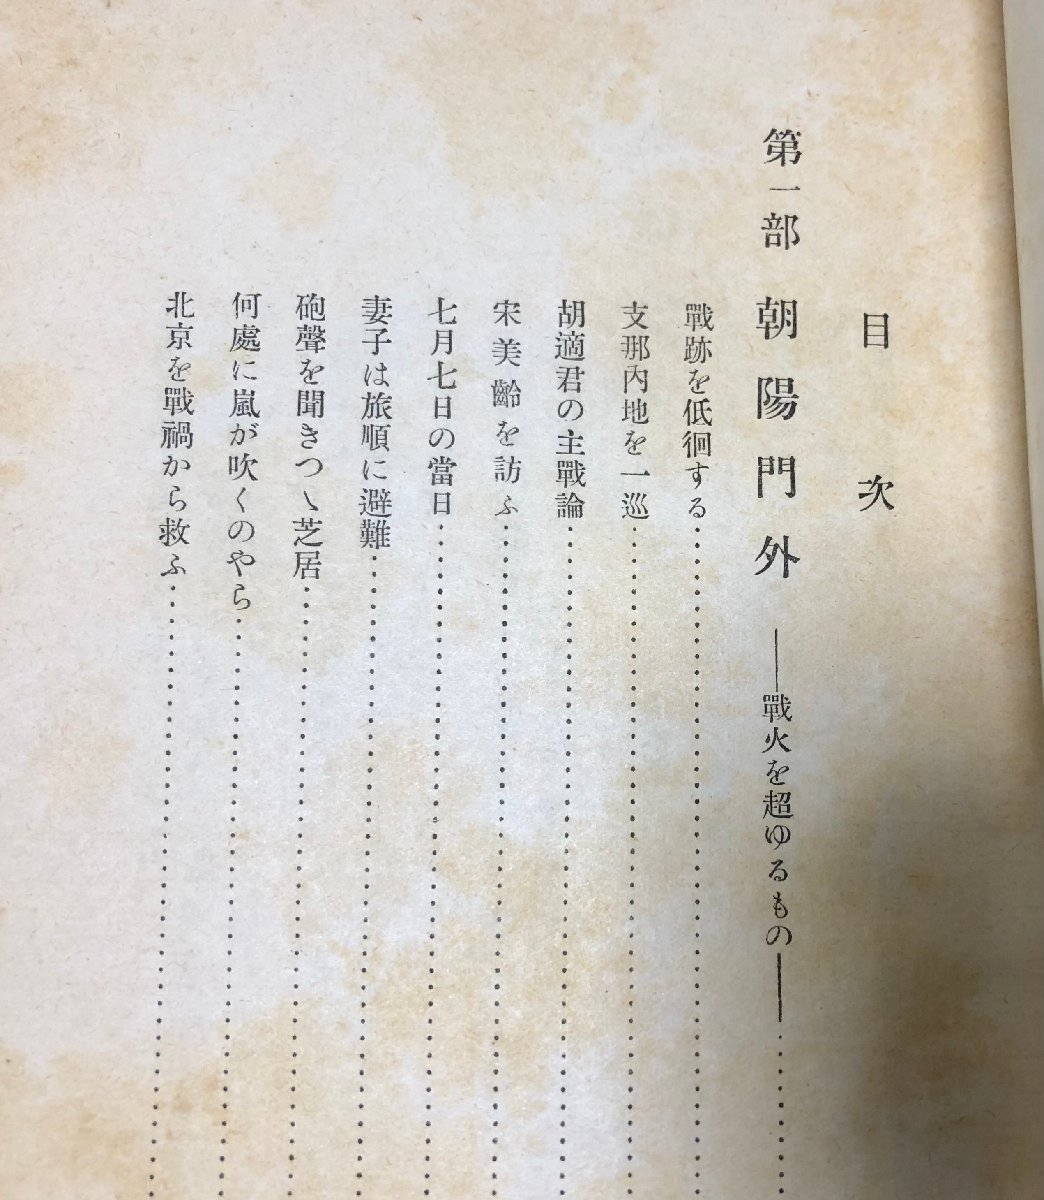 目次
第一部 朝陽門外 ――戰火を超ゆるもの――
戰跡を低徊する
支那內地を一巡
胡適君の主戰論
宋美齡を訪ふ
七月七日の當日
妻子は旅順に避難
砲聲を聞きつゝ芝居
何處に嵐が吹くのやら
北京を戰禍から救ふ